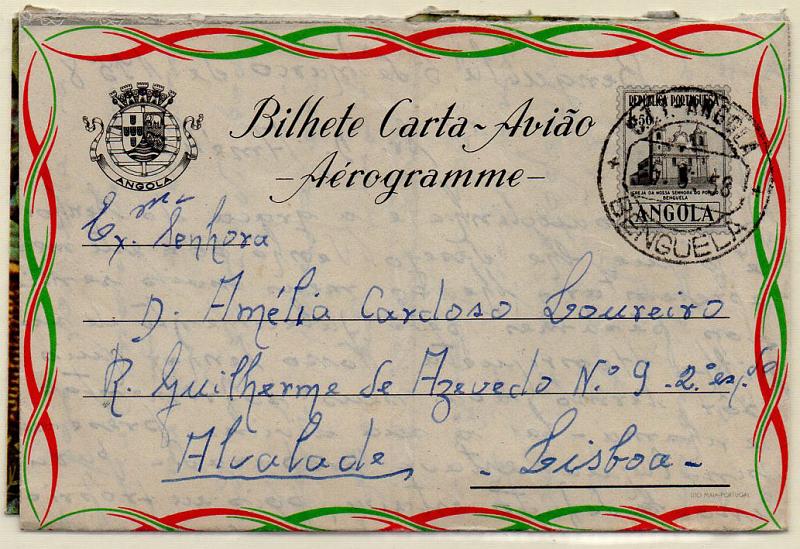 ANGOLA
Bilhete Carta-Avião
-Aérogramme-
REPÚBLICA PORTUGUESA
IGREJA DA NOSSA SENHORA DO
BENGUELA
ANGOLA
C.T.T. ANGOLA
58
BENGUELA
Ex.mª Senhora
D. Amélia Cardoso Loureiro
R. Guilherme de Azevedo N.º 9 - 2.º esq.do
Alvalade - Lisboa -
LITO MAIA-PORTUGAL